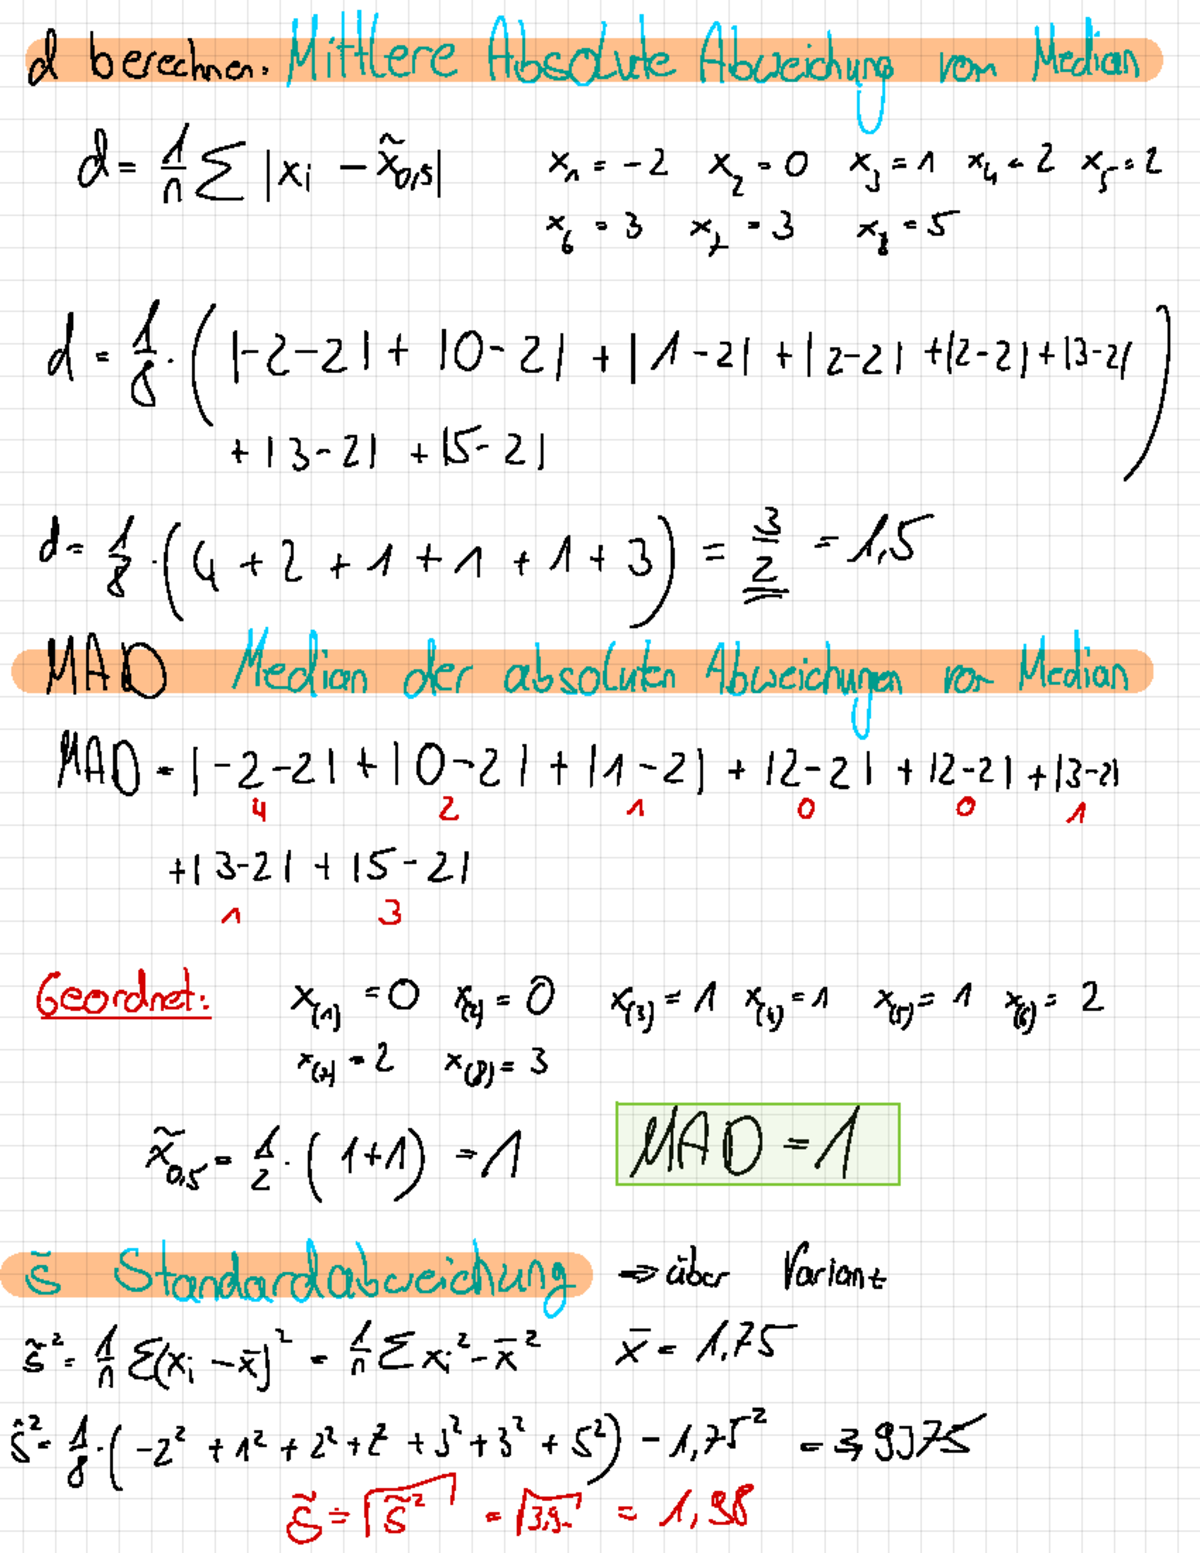 d berechnen. Mittlere Absolute Abweichung vom Median
d = 1/n Σ |xᵢ − x̃₀,₅|
x₁ = −2 x₂ = 0 x₃ = 1 x₄ = 2 x₅ = 2
x₆ = 3 x₇ = 3 x₈ = 5
d = 1/8 · ( |−2−2| + |0−2| + |1−2| + |2−2| + |2−2| + |3−2|
+ |3−2| + |5−2| )
d = 1/8 · (4 + 2 + 1 + 1 + 1 + 3) = 3/2 = 1,5
MAD Median der absoluten Abweichungen vom Median
MAD = |−2−2| + |0−2| + |1−2| + |2−2| + |2−2| + |3−2|
4 2 1 0 0 1
+ |3−2| + |5−2|
1 3
Geordnet: x₍₁₎ = 0 x₍₂₎ = 0 x₍₃₎ = 1 x₍₄₎ = 1 x₍₅₎ = 1 x₍₆₎ = 2
x₍₇₎ = 2 x₍₈₎ = 3
x̃₀,₅ = 1/2 · (1+1) = 1 MAD = 1
s̃ Standardabweichung ⇒ über Variant
s̃² = 1/n Σ(xᵢ − x̄)² = 1/n Σ xᵢ² − x̄² x̄ = 1,75
s̃² = 1/8 · (−2² + 1² + 2² + 2² + 3² + 3² + 5²) − 1,75² = 3,9375
s̃ = √s̃² = √3,9.. = 1,98